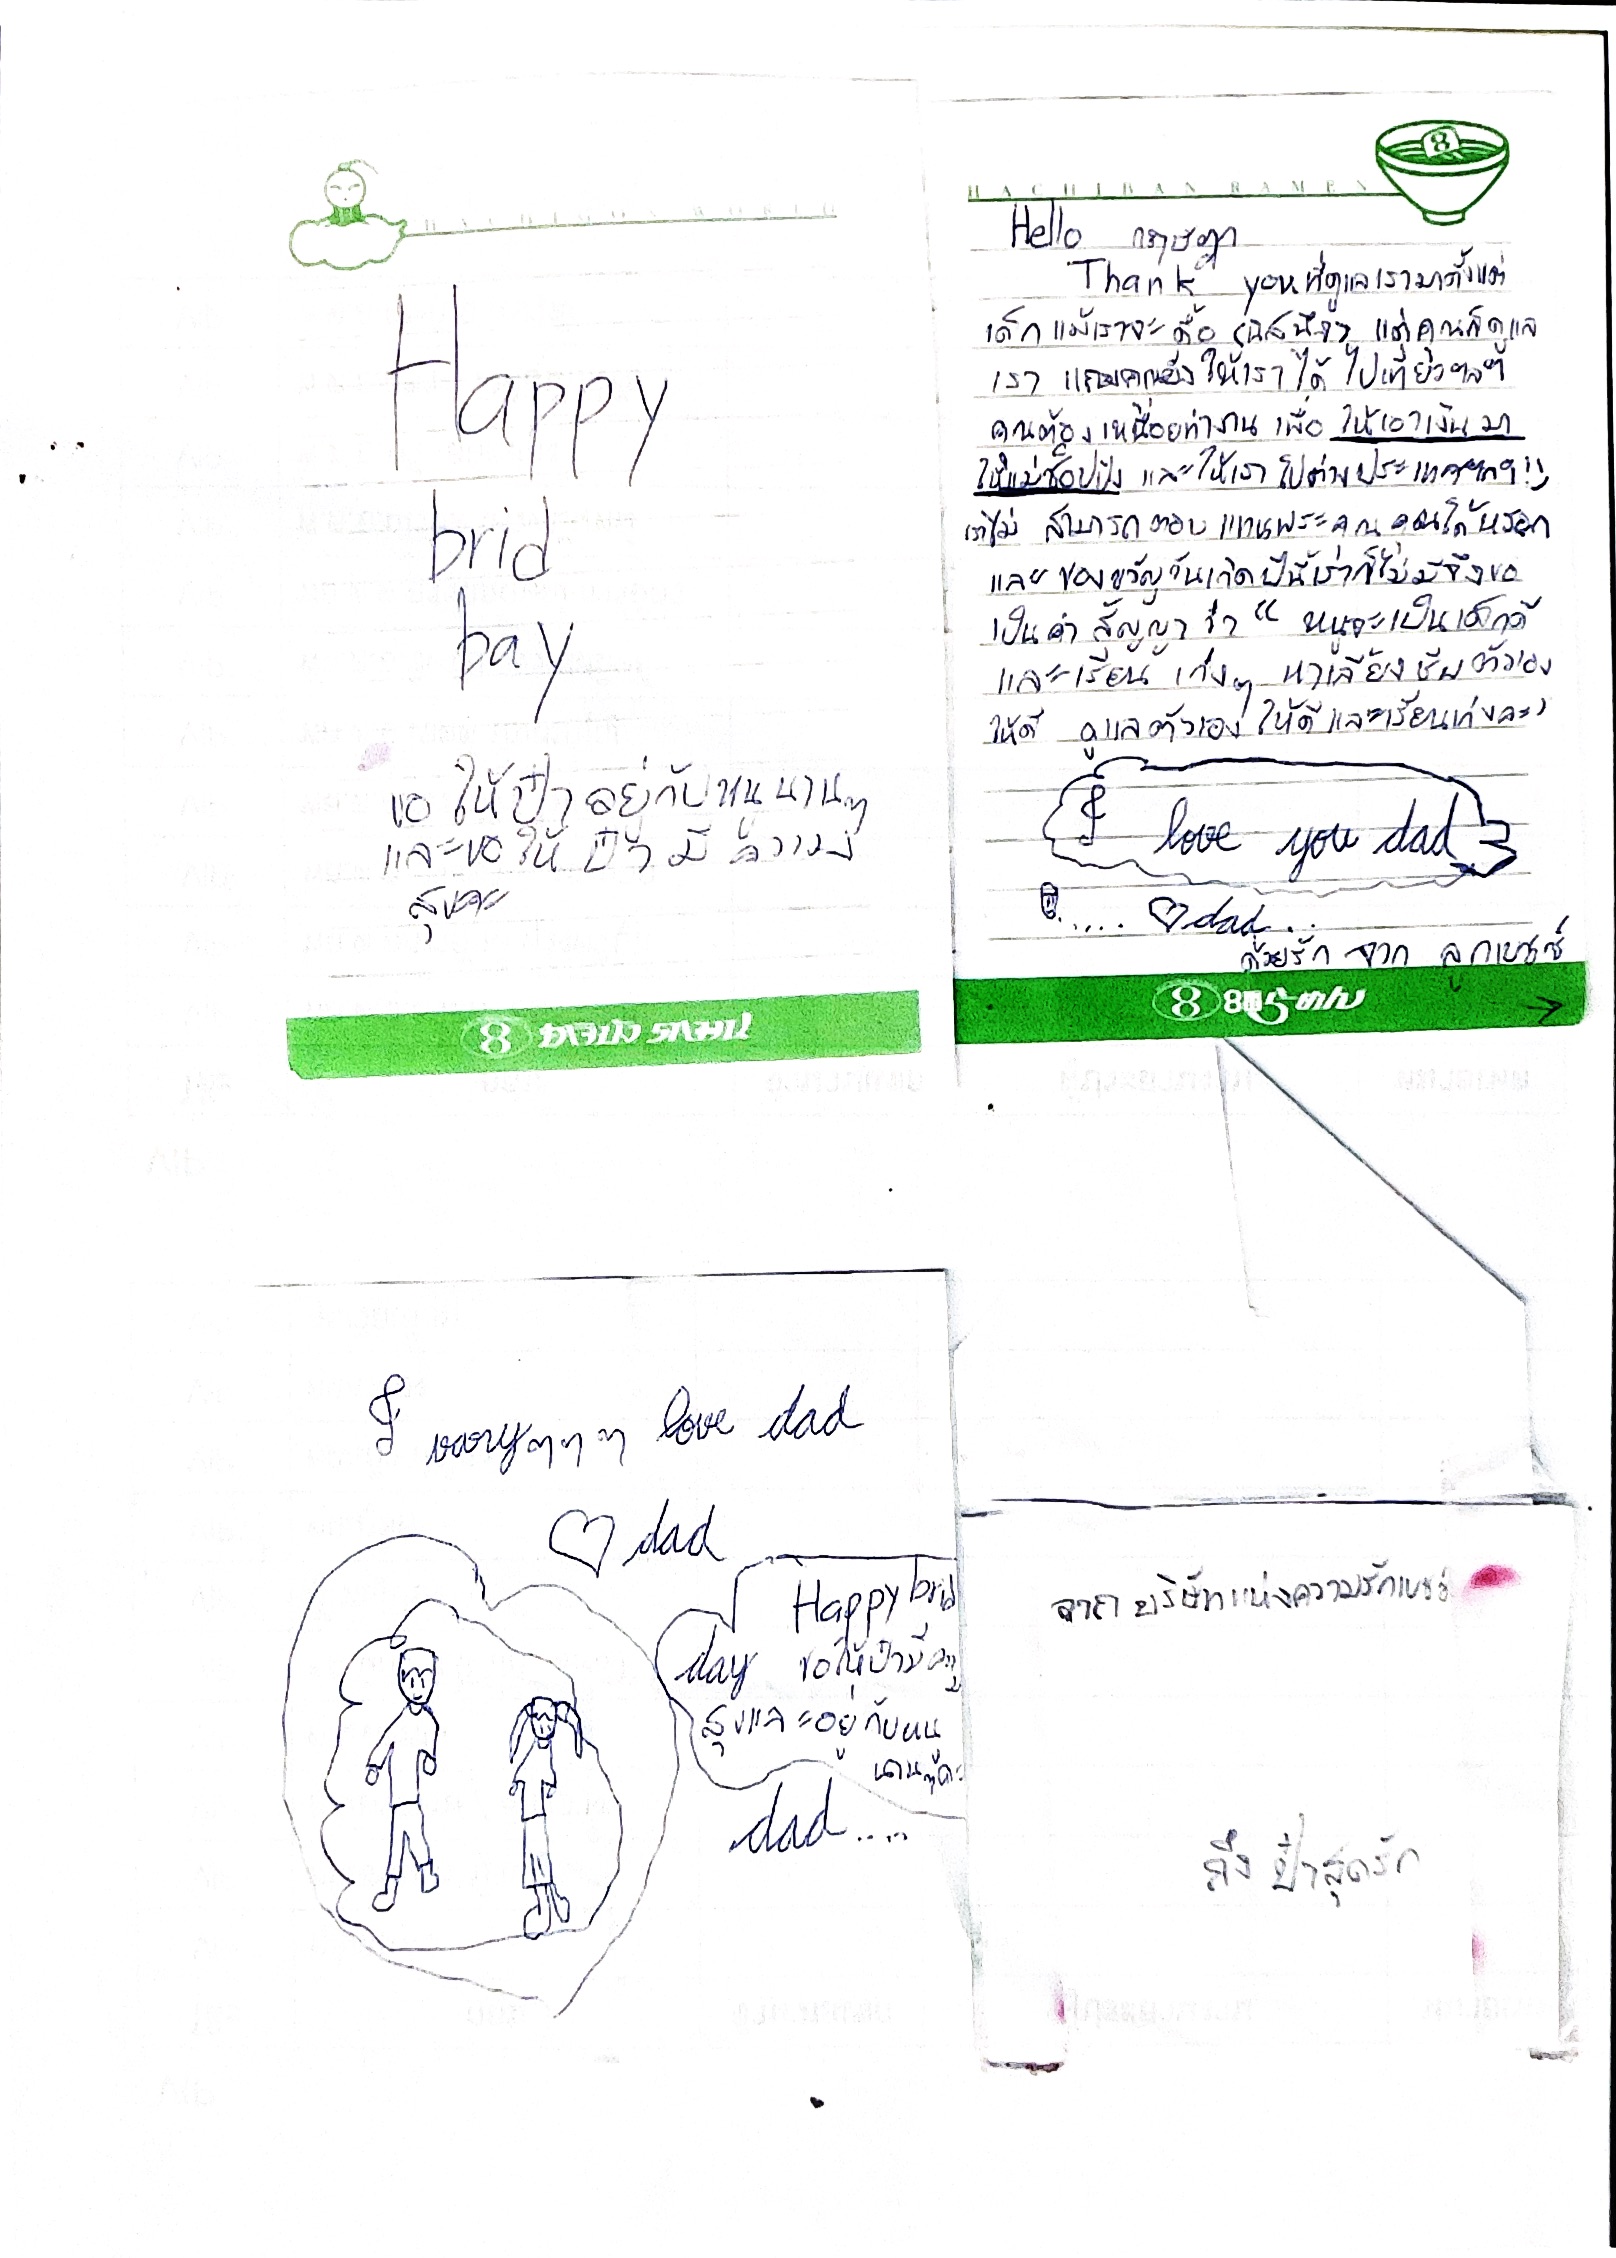 Happy
brid
bay
ขอให้ป๋าอยู่กับหนูนานๆ
และขอให้ป๋ามีความ
สุขคะ
HACHIBAN RAMEN
8
Hello กฤษฎา
Thank you ที่ดูแลเรามาตั้งแต่
เด็ก แม้เราจะดื้อ แต่คุณก็ดูแล
เรา แถมคุณยังให้เราได้ไปเที่ยวฯลฯ
คุณต้องเหนื่อยทำงาน เพื่อ ให้เอาเงินมา
ให้แม่ช็อปปิ้ง และให้เราไปต่างประเทศฯลฯ!!
เราไม่ สามารถตอบแทนพระคุณคุณได้หรอก
และของขวัญวันเกิดปีนี้เราก็ไม่มีจึงขอ
เป็นคำสัญญาว่า “ หนูจะเป็นเด็กดี
และเรียนเก่งๆ หาเลี้ยงชีพตัวเอง
ให้ดี ดูแลตัวเองให้ดีและเรียนเก่งคะ”
I love you dad
..... ♡ dad...
ด้วยรัก จาก ลูกเบนซ์
8
I vavy ๆ ๆ ๆ love dad
♡ dad
Happy brid
day ขอให้ป๋ามีความ
สุขและอยู่กับหนู
นานๆคะ
dad....
จาก บริษัทแห่งความรักเบนซ์
ถึง ป๋าสุดรัก